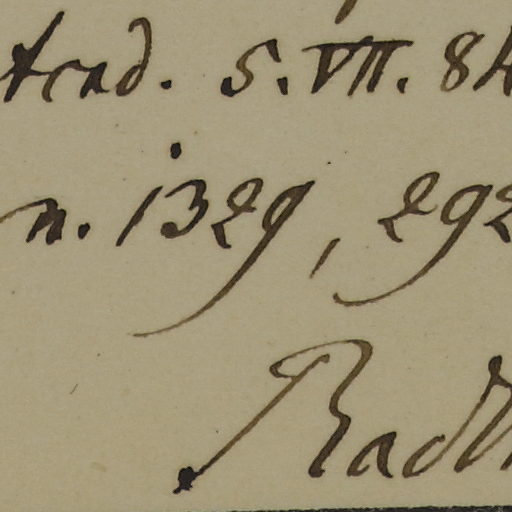 Acad. 5. VII. 84
n. 1329, 292
Radl